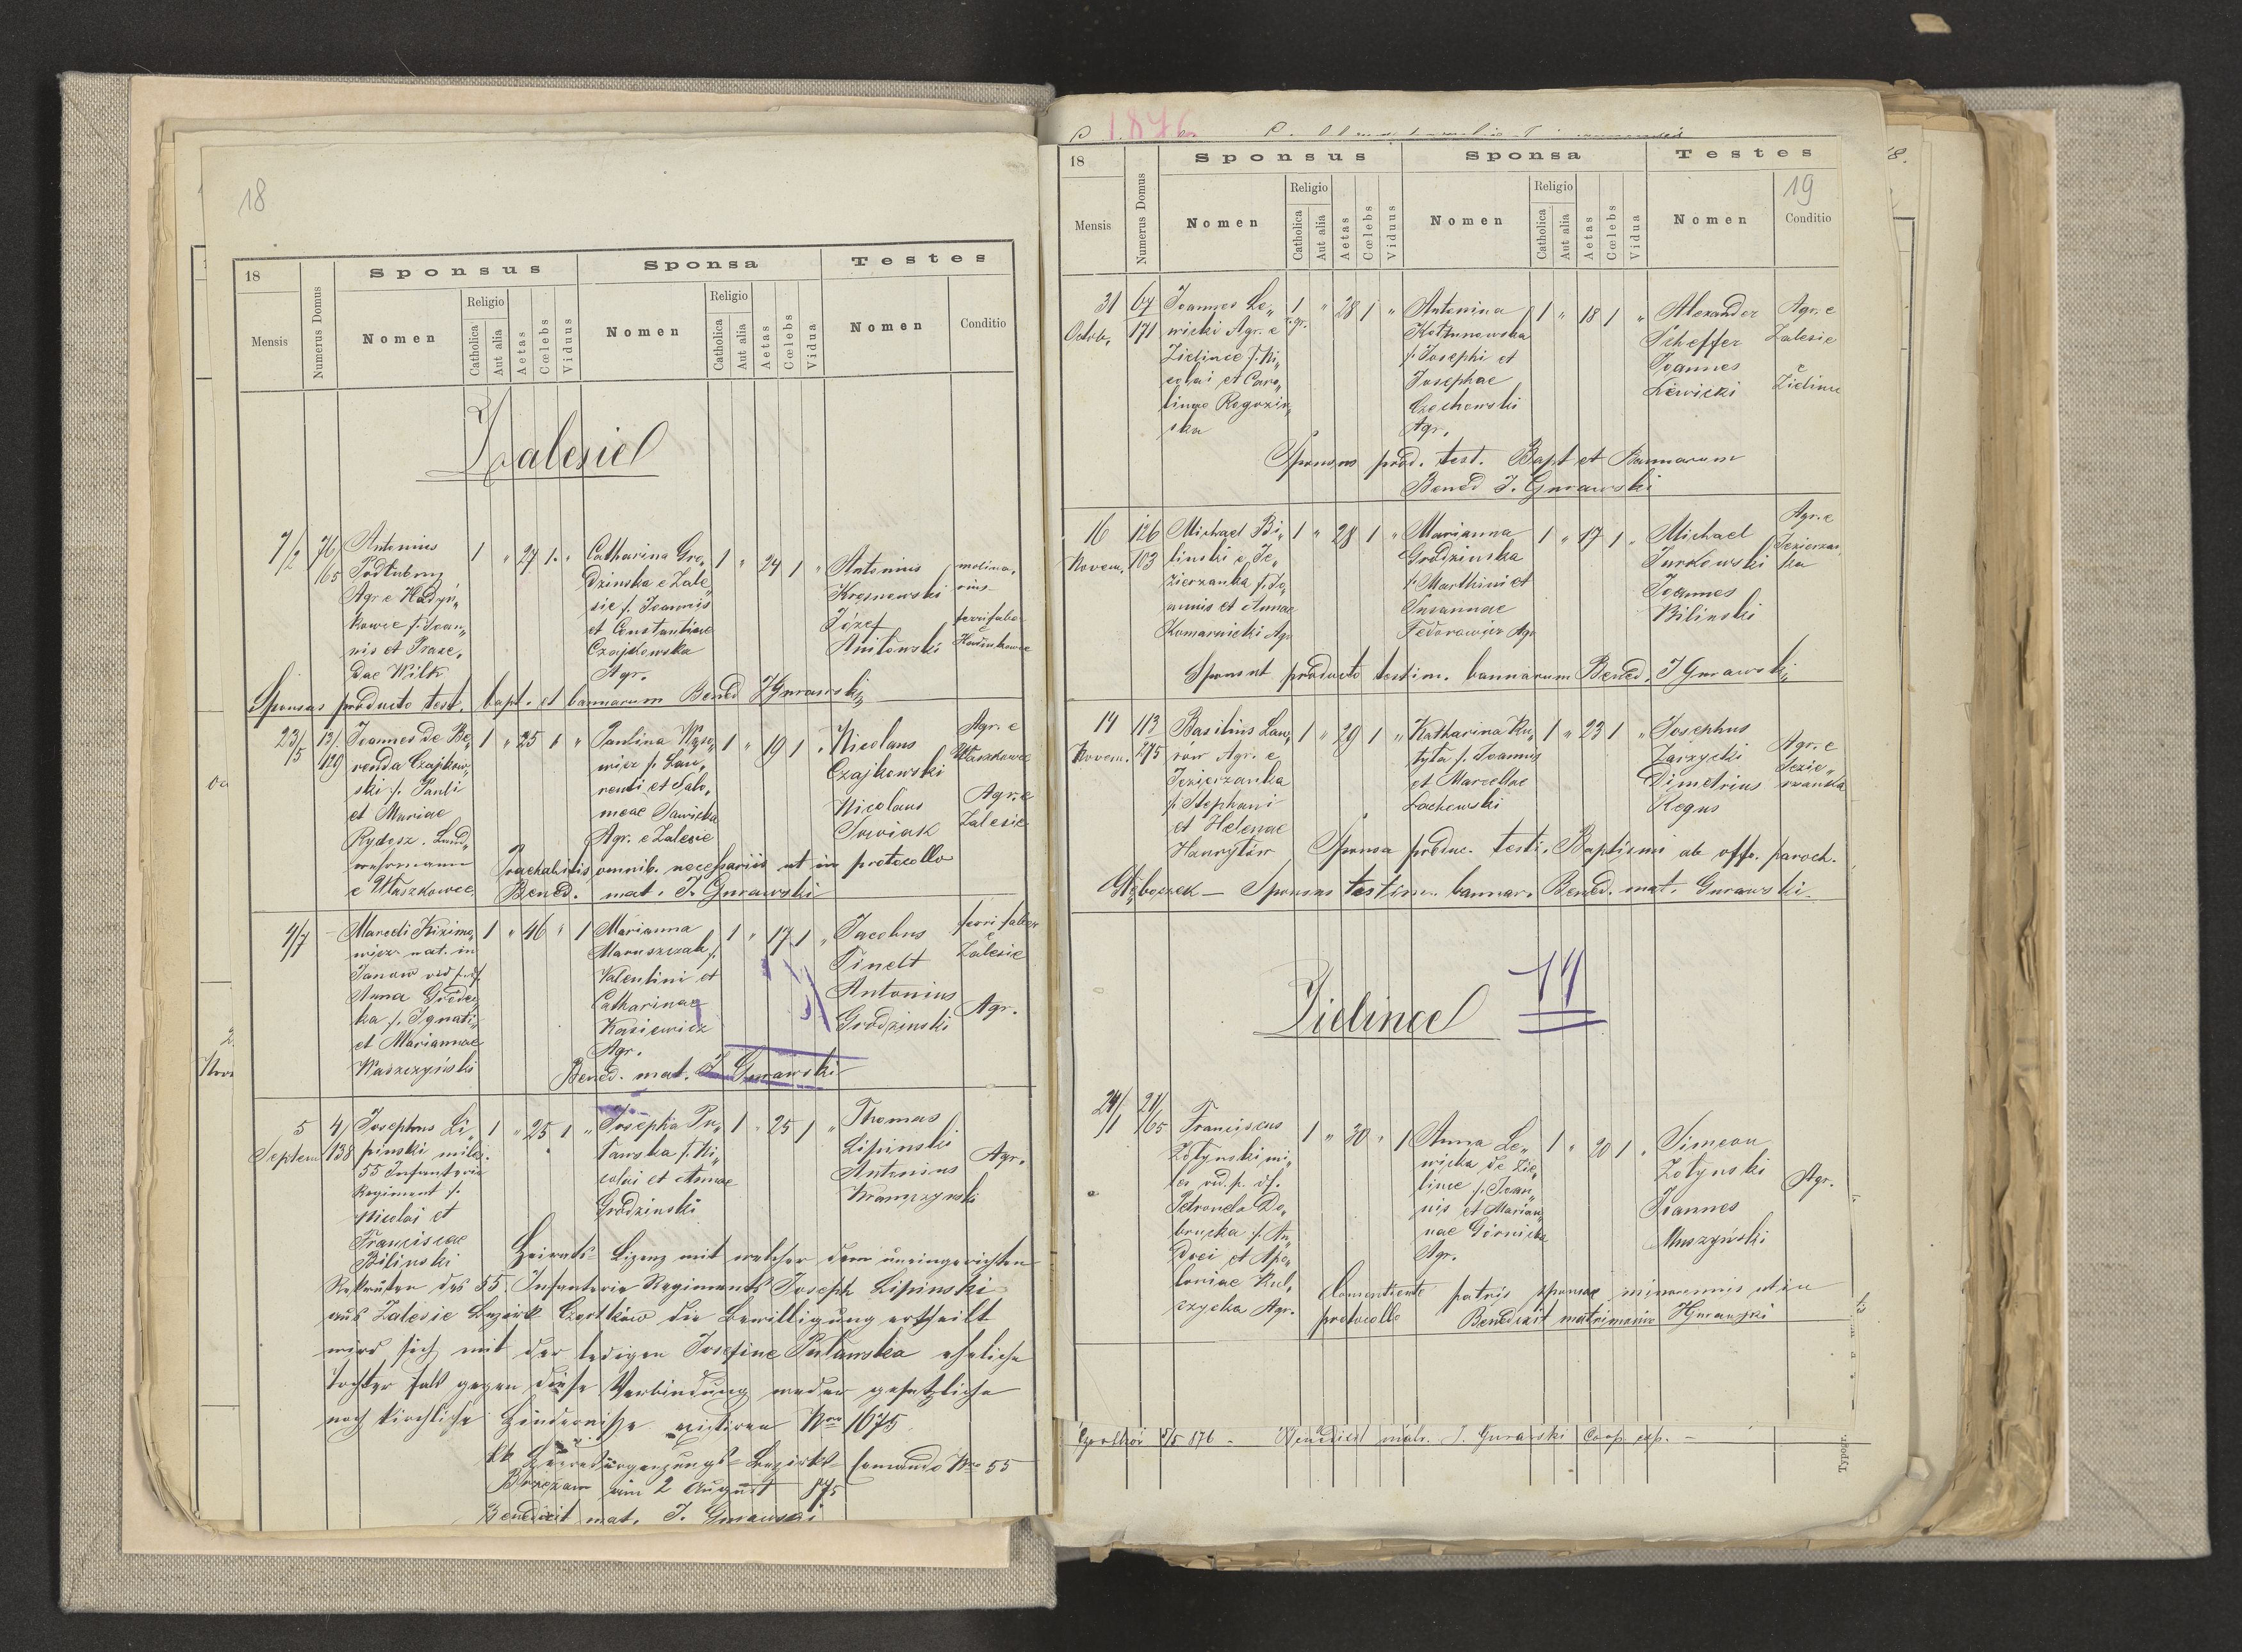 18
18
Mensis
Numerus Domus
Sponsus
Nomen
Religio
Catholica
Aut alia
Aetas
Cœlebs
Viduus
Sponsa
Nomen
Religio
Catholica
Aut alia
Aetas
Cœlebs
Vidua
Testes
Nomen
Conditio
Zalesie
7/2
76/165
Antonius
Podłubny
Agr e Hadyn„
kowce f. Joan„
nis et Praxe„
dae Wilk
1 „ 27 1 „
Catharina Gro„
dzinska e Zale
sie f. Joannis
et Constantiae
Czajkowska
Agr.
1 „ 24 1 „
Antonius
Kręsnowski
Józef
Anitowski
molina„
rius
ferri faber
Sponsus producto test. bapt. et bannorum Bened JGurawski
23/5
13/129
Joannes de Be„
renda Czajkow„
ski f. Pauli
et Mariae
Rydosz. Land„
wehrmann
e Ułaszkowce
1 „ 25 1 „
Paulina Wyso„
wicz f. Lau„
renti et Salo„
meae Sawicka
Agr. e Zalesie
1 „ 19 1 „
Nicolaus
Czajkowski
Nicolaus
Sowiak
Agr. e
Ułaszkowce
Agr. e
Zalesie
Praehabitis omnib. necessariis ut in protocollo
Bened. mat. J. Gurawski
4/7
Marceli
wicz nat. in
Janow vid p. df.
Anna Gródec„
ka f. Ignati„
et Mariannae
Waszczyński
1 „ 46 „ 1
Marianna
Maruszczak f.
Valentini et
Catharinae
Kasiewicz
Agr.
1 „ 17 1 „
Jacobus
Tinelt
Antonius
Grodzinski
ferri faber
e
Zalesie
Agr.
Bened. mat. J. Gurawski
5
Septem
4/138
Josephus Li„
pinski miles.
55 Infanterie
Regiment f.
Nicolai et
Franciscae
Bilinski
1 „ 25 1 „
Josepha Pu„
ławska f. Ni„
colai et Annae
Grodzinski
1 „ 25 1 „
Thomas
Lipinski
Antonius
Krawczynski
Agr.
Heirats-Lizenz mit welcher dem uneingereihten
Rekruten des 55. Infanterie Regiments Joseph Lipinski
aus Zalesie Bezirk Czortków die Bewilligung ertheilt
wird sich mit der ledigen Josefine Pulawska eheliche
Tochter falls gegen diese Verbindung weder gesetzliche
noch kirchliche Hinderniße existiren Nro 1675
kk Ergänzungs-Bezirks-Comando Nro 55
Brzeżan am 2 August 875
Benedixit mat. J. Gurawski
1876
18
19
Mensis
Numerus Domus
Sponsus
Nomen
Religio
Catholica
Aut alia
Aetas
Cœlebs
Viduus
Sponsa
Nomen
Religio
Catholica
Aut alia
Aetas
Cœlebs
Vidua
Testes
Nomen
Conditio
31
Octob.
67
171
Joannes Le„
wicki Agr. e
Zielince f. Ni„
colai et Caro„
linae Rogozin„
ska
1 „ 28 1 „
r. gr.
Antonina
Kottunowska
f. Josephi et
Josephae
Czechowski
Agr.
1 „ 18 1 „
Alexander
Scheffer
Joannes
Lewicki
Agr. e
Zalesie
e
Zielince
Sponsus prod. test. Bapt et Bannorum
Bened J. Gurawski
16
Novem.
126
103
Michael Bi„
linski e Je„
zierzanka f. Jo„
annis et Annae
Komarnicki Agr
1 „ 28 1 „
Marianna
Grodzinska
f. Marthini et
Susannae
Fedorowicz Agr
1 „ 17 1 „
Michael
Jurkowski
Joannes
Bilinski
Agr. e
Jezierzan„
ka
Sponsus producto testim. bannorum Bened. J Gurawski
14
Novem.
113
275
Basilius Law„
rów Agr. e
Jezierzanka
f. Stephani
et Helenae
Hawryłów
1 „ 29 1 „
Katharina Ku„
tyła f. Joannis
et Marcellae
Lachowski
1 „ 23 1 „
Josephus
Zarzycki
Dimetrius
Regus
Agr. e
Jezie„
rzanka
Sponsa produc. testi. Baptismi ab offo. paroch.
Głęboczek — Sponsus testim. bannor. Bened. mat. Gurawski
Zielince
14
24/1
21/65
Franciscus
Zołynski mi„
les vid. p. df.
Petronela Do„
brucka f. An„
drei et Apo„
loniae Kul„
czycka Agr.
1 „ 30 „ 1
Anna Le„
wicka de Zie„
lince f. Joan„
nis et Marian„
nae Górnicka
Agr.
1 „ 20 1 „
Simeon
Zołynski
Joannes
Muszyński
Agr.
Consentiente patris sponsae minorennis ut in
protocollo Benedixit matrimonio JGurawski
Czortków 7/5 876 – Benedixit matr. J. Gurawski Coop. exp. –
Typogr.